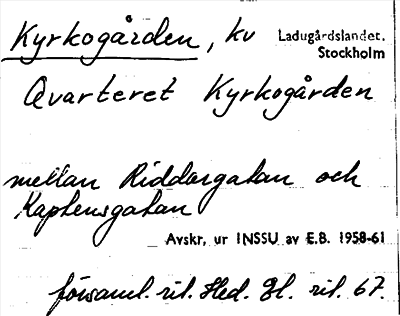 Kyrkogården, kv Ladugårdslandet.
Stockholm
Qvarteret Kyrkogården
mellan Riddargatan och
Kaptensgatan
Avskr, ur INSSU av E.B. 1958-61
församl. rit. Hed. El. rit. 67.